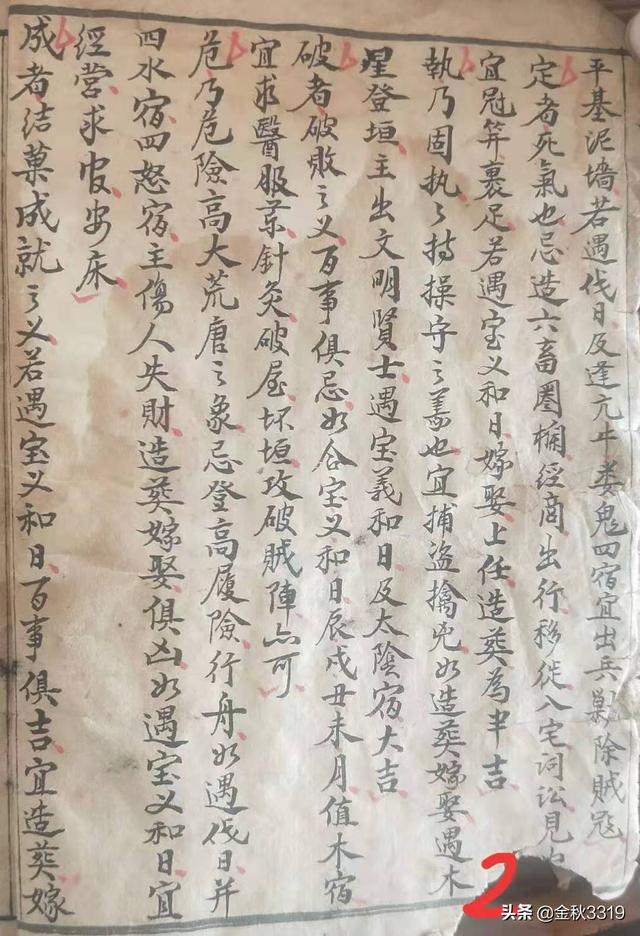 平基泥墙若遇伐日及逢亢牛娄鬼四宿宜出兵剿除贼寇
定者死氣也忌造六畜圈欄经商出行移徙入宅词讼見
宜冠笄裹足若遇宝义和日嫁娶上任造葵為半吉
執乃固执之持操守之義也宜捕盗擒兇如造葵嫁娶遇木
星登垣主出文明賢士遇宝義和日及太陰宿大吉
破者破敗之义百事俱忌如合宝义和日辰戍丑未月值木宿
宜求醫服药針灸破屋坏垣攻破賊陣亦可
危乃危險高大荒唐之象忌登高履險行舟如遇伐日并
四水宿四怒宿主傷人失財造葵嫁娶俱凶如遇宝义和日宜
經营求官安床
成者结菓成就之义若遇宝义和日百事俱吉宜造葵嫁
2
头条 @金秋3319